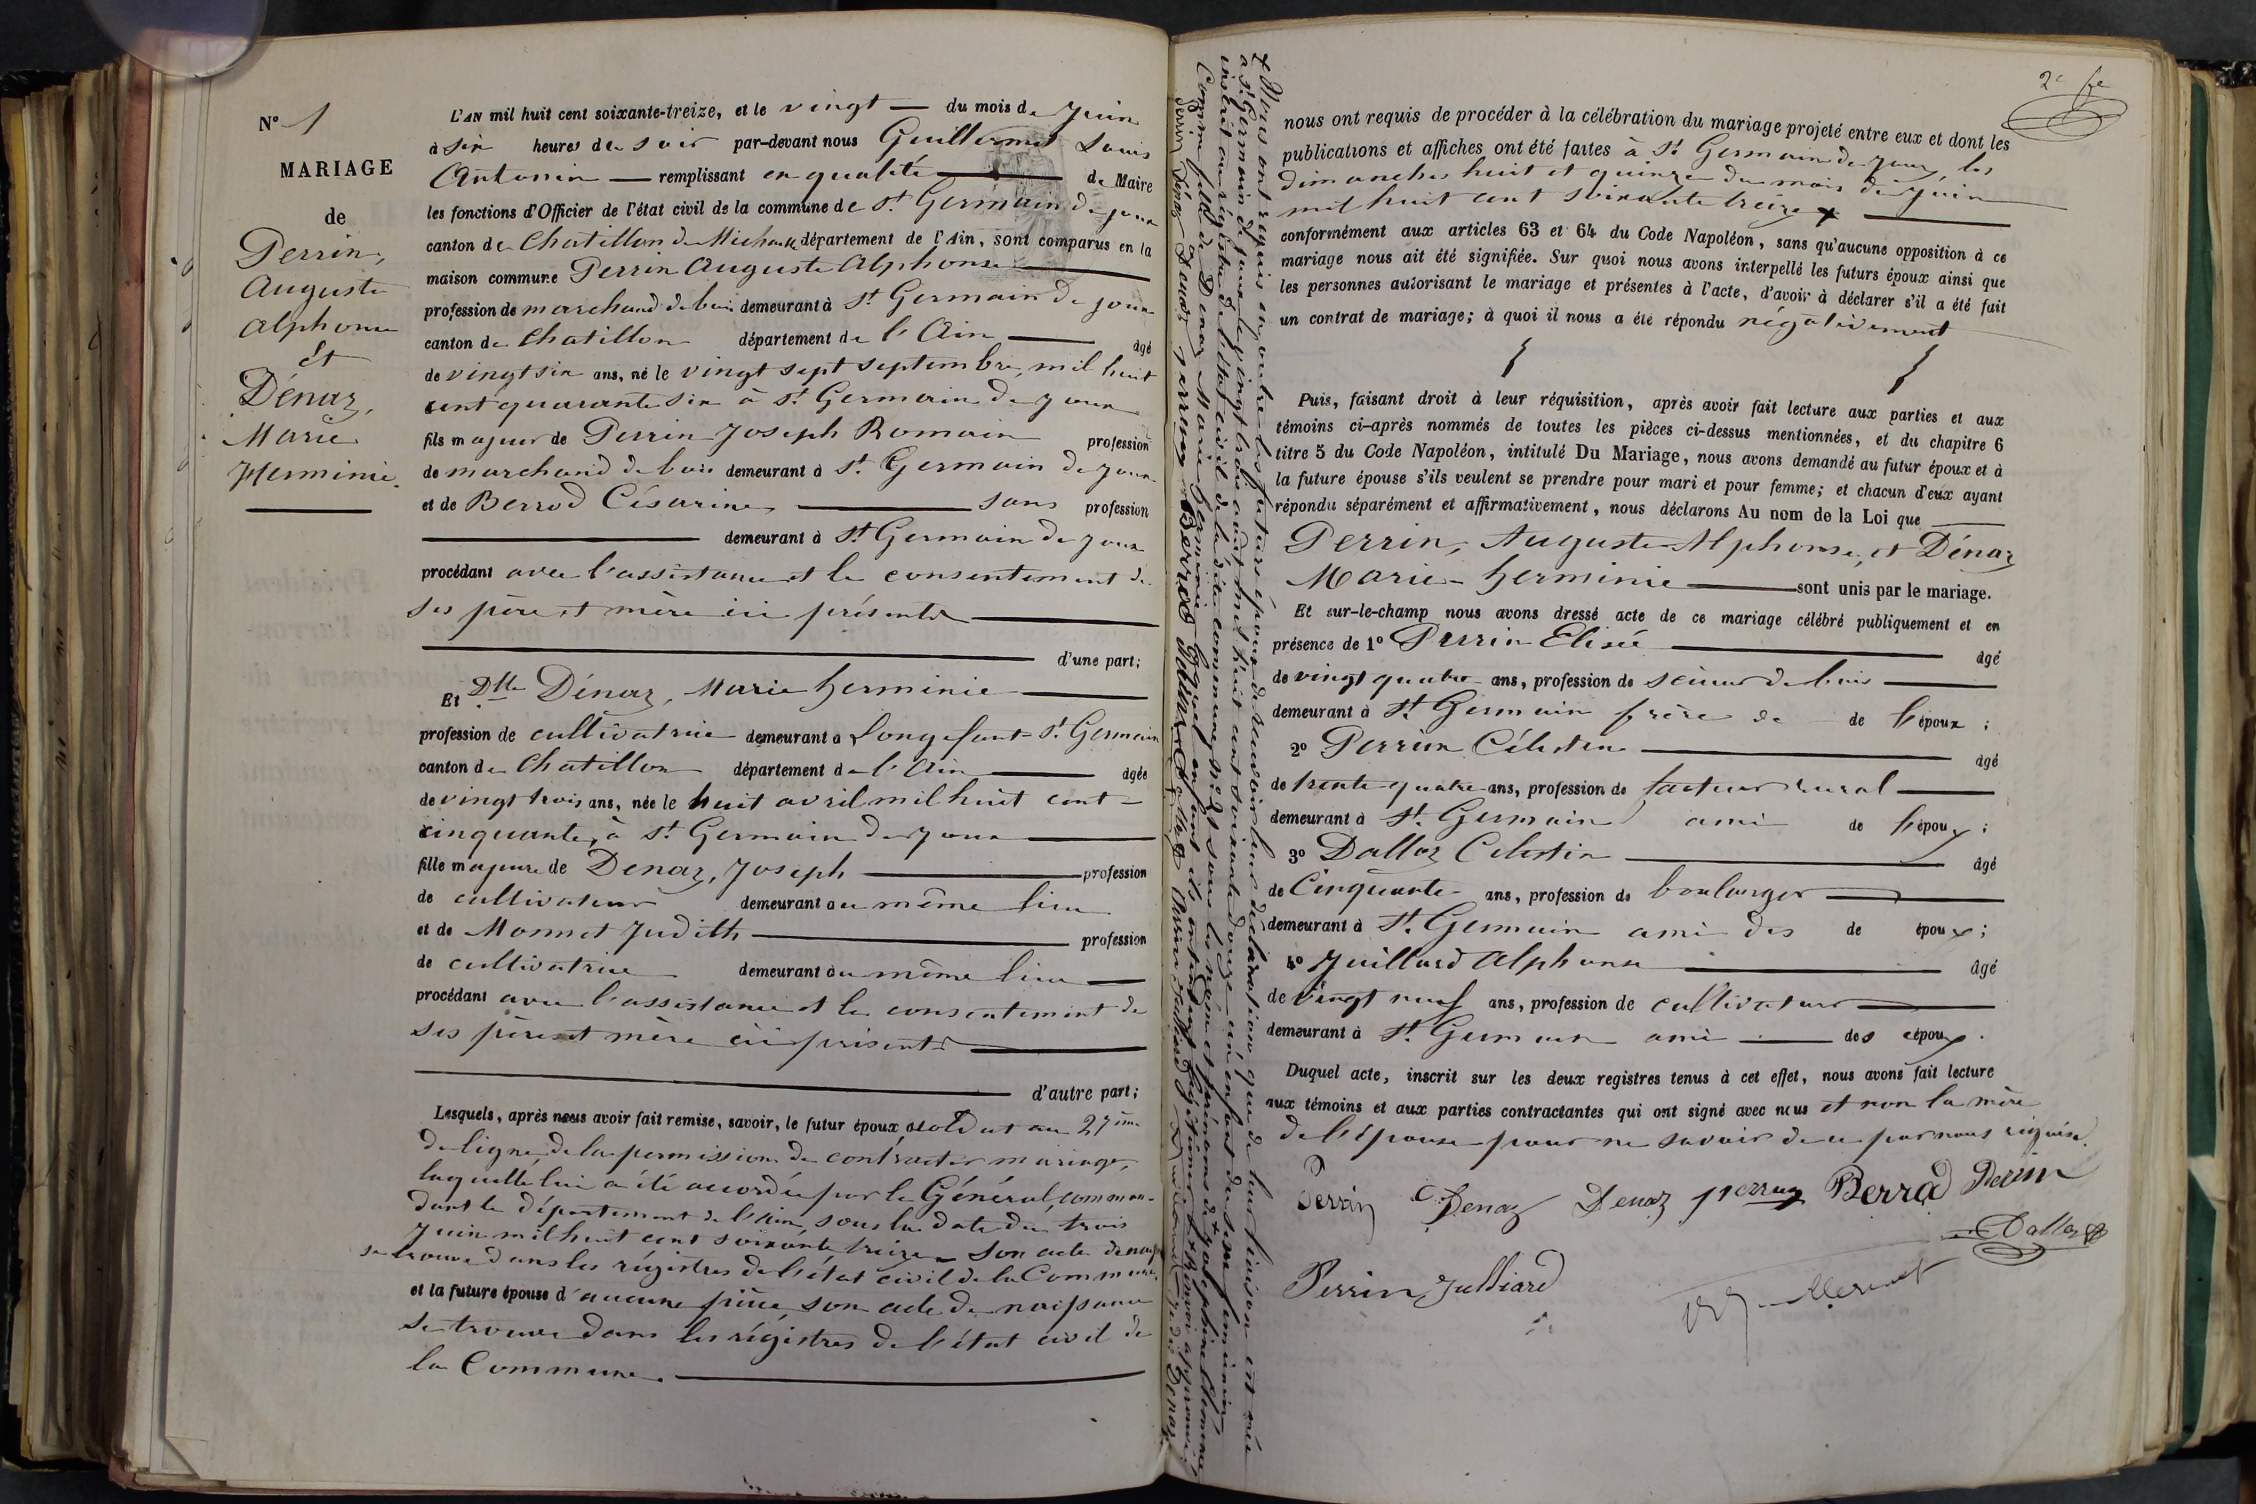 N° 1
MARIAGE
de
Perrin,
Auguste
Alphonse
et
Dénaz,
Marie
Herminie.
L'AN mil huit cent soixante-treize, et le vingt du mois de Juin
à six heures du soir par-devant nous Guillermet Louis
Antonin remplissant en qualité de Maire
les fonctions d'Officier de l'état civil de la commune de St Germain de joux
canton de Chatillon de Michaille département de l'Ain, sont comparus en la
maison commune Perrin Auguste Alphonse
profession de marchand de bois demeurant à St Germain de joux
canton de Chatillon département de l'Ain âgé
de vingt six ans, né le vingt sept septembre, mil huit
cent quarante six à St Germain de joux
fils majeur de Perrin Joseph Romain profession
de marchand de bois demeurant à St Germain de joux
et de Berrod Césarine sans profession
demeurant à St Germain de joux
procédant avec l'assistance et le consentement de
ses père et mère ici présents
d'une part;
Et Dlle Dénaz, Marie herminie
profession de cultivatrice demeurant à Longefant St Germain
canton de Chatillon département de l'Ain âgée
de vingt trois ans, née le huit avril mil huit cent
cinquante, à St Germain de joux
fille majeure de Denaz, Joseph profession
de cultivateur demeurant au même lieu
et de Monnet Judith profession
de cultivatrice demeurant au même lieu
procédant avec l'assistance et le consentement de
ses père et mère ici présents
d'autre part;
Lesquels, après nous avoir fait remise, savoir, le futur époux soldat au 27ème
de ligne, de la permission de contracter mariage,
laquelle lui a été accordée par le Général, comman-
dant le département de l'Ain, sous la date du trois
Juin mil huit cent soixante treize. Son acte de
se trouve dans les régistres de l'état civil de la Commune.
et la future épouse d'aucune pièce, son acte de naissance
se trouve dans les régistres de l'état civil de
la Commune.
+ Nous ont requis en outre les futurs époux de recevoir leur déclaration que de leur liaison est née
à St Germain de joux le vingt trois août mil huit cent soixante douze un enfant du sexe féminin
inscrit au régistre de l'état civil de la dite commune, n° 21 sous les nom et prénoms de Joséphine
Comme fille de Denaz Marie herminie, lequel enfant ils entendent légitimer. Renvoi approuvé.
Perrin Denaz Denaz perrin Berrod
2e fe
nous ont requis de procéder à la célébration du mariage projeté entre eux et dont les
publications et affiches ont été faites à St Germain de joux, les
dimanches huit et quinze du mois de Juin
mil huit cent soixante treize +
conformément aux articles 63 et 64 du Code Napoléon, sans qu'aucune opposition à ce
mariage nous ait été signifiée. Sur quoi nous avons interpellé les futurs époux ainsi que
les personnes autorisant le mariage et présentes à l'acte, d'avoir à déclarer s'il a été fait
un contrat de mariage; à quoi il nous a été répondu négativement
Puis, faisant droit à leur réquisition, après avoir fait lecture aux parties et aux
témoins ci-après nommés de toutes les pièces ci-dessus mentionnées, et du chapitre 6
titre 5 du Code Napoléon, intitulé Du Mariage, nous avons demandé au futur époux et à
la future épouse s'ils veulent se prendre pour mari et pour femme; et chacun d'eux ayant
répondu séparément et affirmativement, nous déclarons Au nom de la Loi que
Perrin, Auguste Alphonse, et Dénaz
Marie-herminie sont unis par le mariage.
Et sur-le-champ nous avons dressé acte de ce mariage célébré publiquement et en
présence de 1° Perrin Elisée âgé
de vingt quatre ans, profession de scieur de bois
demeurant à St Germain frère de de l'époux;
2° Perrin Célestin âgé
de trente quatre ans, profession de facteur rural
demeurant à St Germain ami de l'époux;
3° Dalloz Celestin âgé
de Cinquante ans, profession de boulanger
demeurant à St Germain ami des de époux;
4° Juillard Alphonse âgé
de vingt neuf ans, profession de cultivateur
demeurant à St Germain ami des époux.
Duquel acte, inscrit sur les deux registres tenus à cet effet, nous avons fait lecture
aux témoins et aux parties contractantes qui ont signé avec nous et non la mère
de l'épouse pour ne savoir de ce par nous requise.
Perrin Denaz Denaz perrin Berrod Perrin
Dalloz
Perrin Julliard